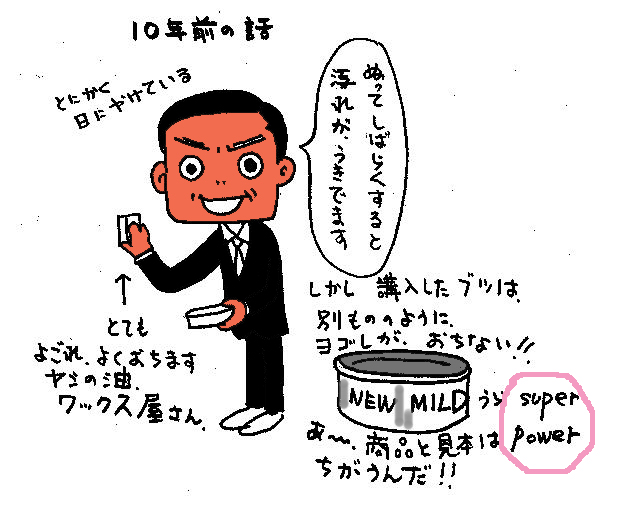 10年前の話
とにかく
日にやけている
ぬってしばらくすると
汚れが、うきでます
とても
よごれ、よくおちます
ヤシの油、
ワックス屋さん、
しかし 購入したブツは、
別もののように、
ヨゴレが、おちない!!
NEW MILD
うら super
power
あ〜、商品と見本は
ちがうんだ!!